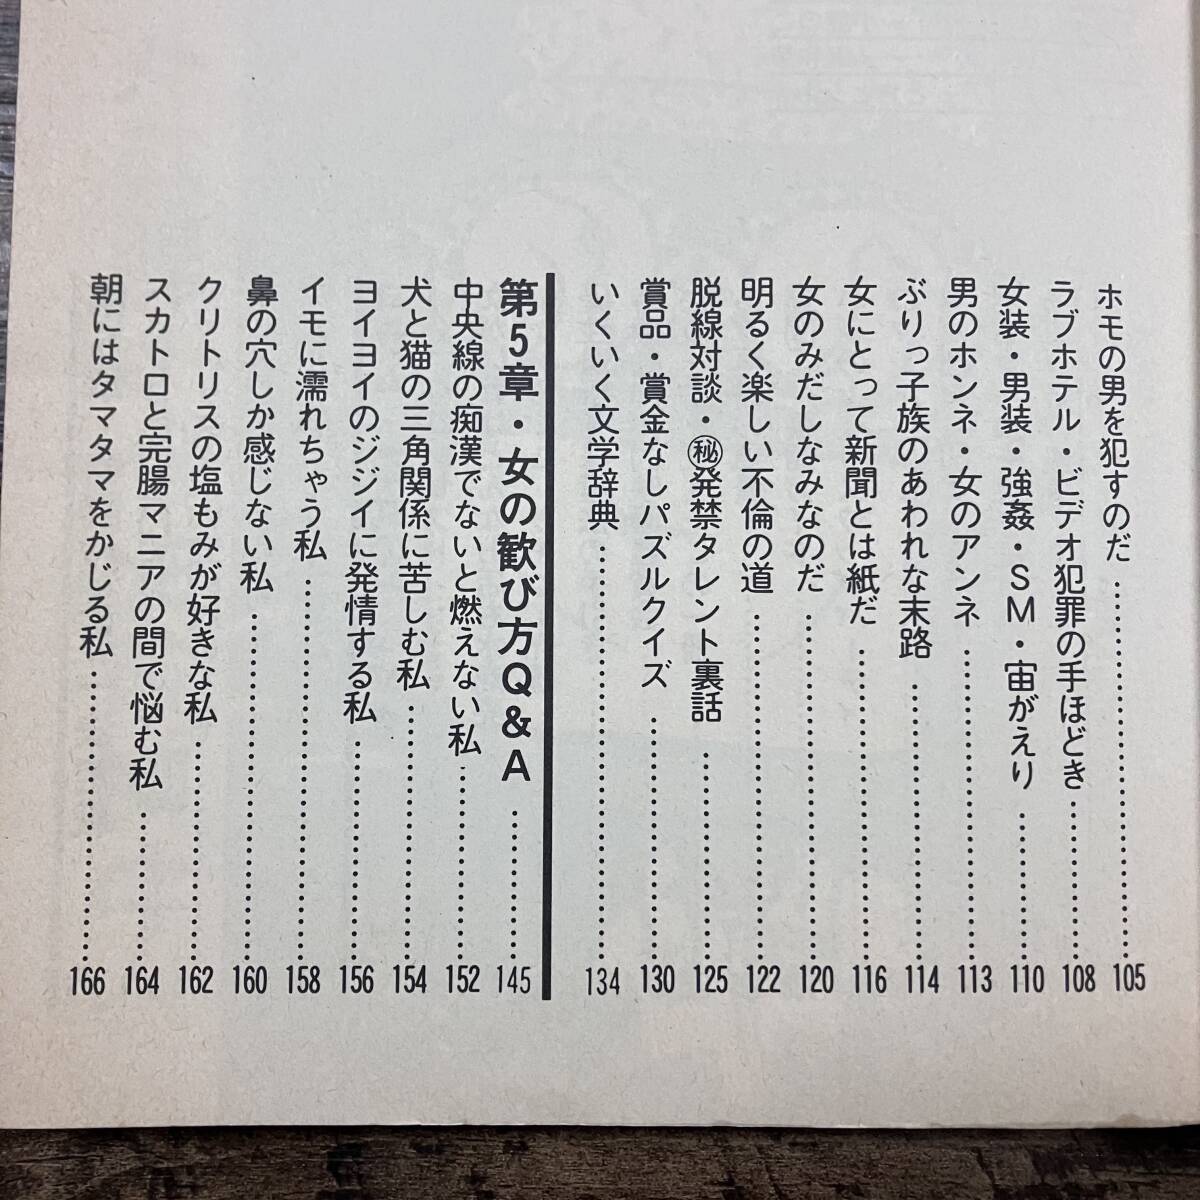 ホモの男を犯すのだ……………………………105
ラブホテル・ビデオ犯罪の手ほどき…………108
女装・男装・強姦・SM・宙がえり…………110
男のホンネ・女のアンネ………………………113
ぶりっ子族のあわれな末路……………………114
女にとって新聞とは紙だ………………………116
女のみだしなみなのだ…………………………120
明るく楽しい不倫の道…………………………122
脱線対談・㊙発禁タレント裏話………………125
賞品・賞金なしパズルクイズ…………………130
いくいく文学辞典………………………………134
第5章・女の歓び方Q&A……………145
中央線の痴漢でないと燃えない私……………152
犬と猫の三角関係に苦しむ私…………………154
ヨイヨイのジジイに発情する私………………156
イモに濡れちゃう私……………………………158
鼻の穴しか感じない私…………………………160
クリトリスの塩もみが好きな私………………162
スカトロと完腸マニアの間で悩む私…………164
朝にはタマタマをかじる私……………………166